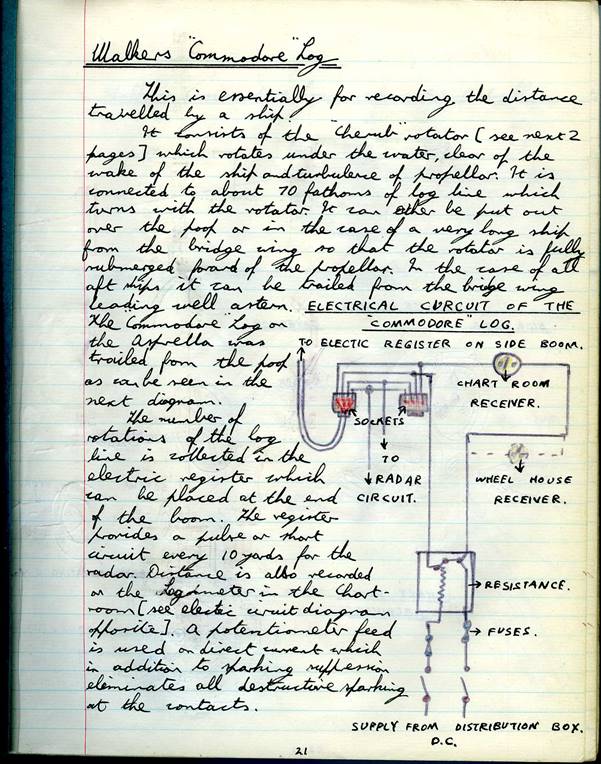 Walkers "Commodore" Log
This is essentially for recording the distance
travelled by a ship.
It consists of the "Cherub" rotator [see next 2
pages] which rotates under the water, clear of the
wake of the ship and turbulence of propellar. It is
connected to about 70 fathoms of log line which
turns with the rotator. It can either be put out
over the poop or in the case of a very long ship
from the bridge wing so that the rotator is fully
submerged forard of the propellar. In the case of all
aft ships it can be trailed from the bridge wing
leading well astern.
The "Commodore" Log on
the Asprella was
trailed from the poop
as can be seen in the
next diagram.
The number of
rotations of the log
line is collected in the
electric register which
can be placed at the end
of the boom. The register
provides a pulse or short
circuit every 10 yards for the
radar. Distance is also recorded
on the Logometer in the Chart-
room [see electric circuit diagram
opposite]. A potentiometer feed
is used on direct current which
in addition to sparking suppression
eliminates all destructive sparking
at the contacts.
ELECTRICAL CURCUIT OF THE
"COMMODORE" LOG.
TO ELECTIC REGISTER ON SIDE BOOM.
CHART ROOM
RECEIVER.
SOCKETS
TO
RADAR
CIRCUIT.
WHEEL HOUSE
RECEIVER.
RESISTANCE.
FUSES.
SUPPLY FROM DISTRIBUTION BOX.
D.C.
21